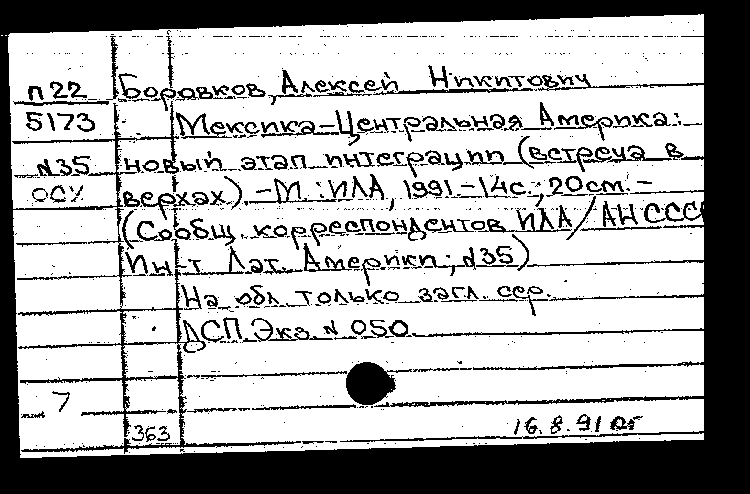 П22 Боровков, Алексей Никитович
5173 Мексика-Центральная Америка:
N35 новый этап интеграции (встреча в
верхах).-М.:ИЛА, 1991.-14с.; 20см.-
(Сообщ. корреспондентов ИЛА/АН СССР
Ин-т Лат. Америки; N35)
На обл. только загл. сер.
ДСП. Экз. N 050.
7
363
16.8.91